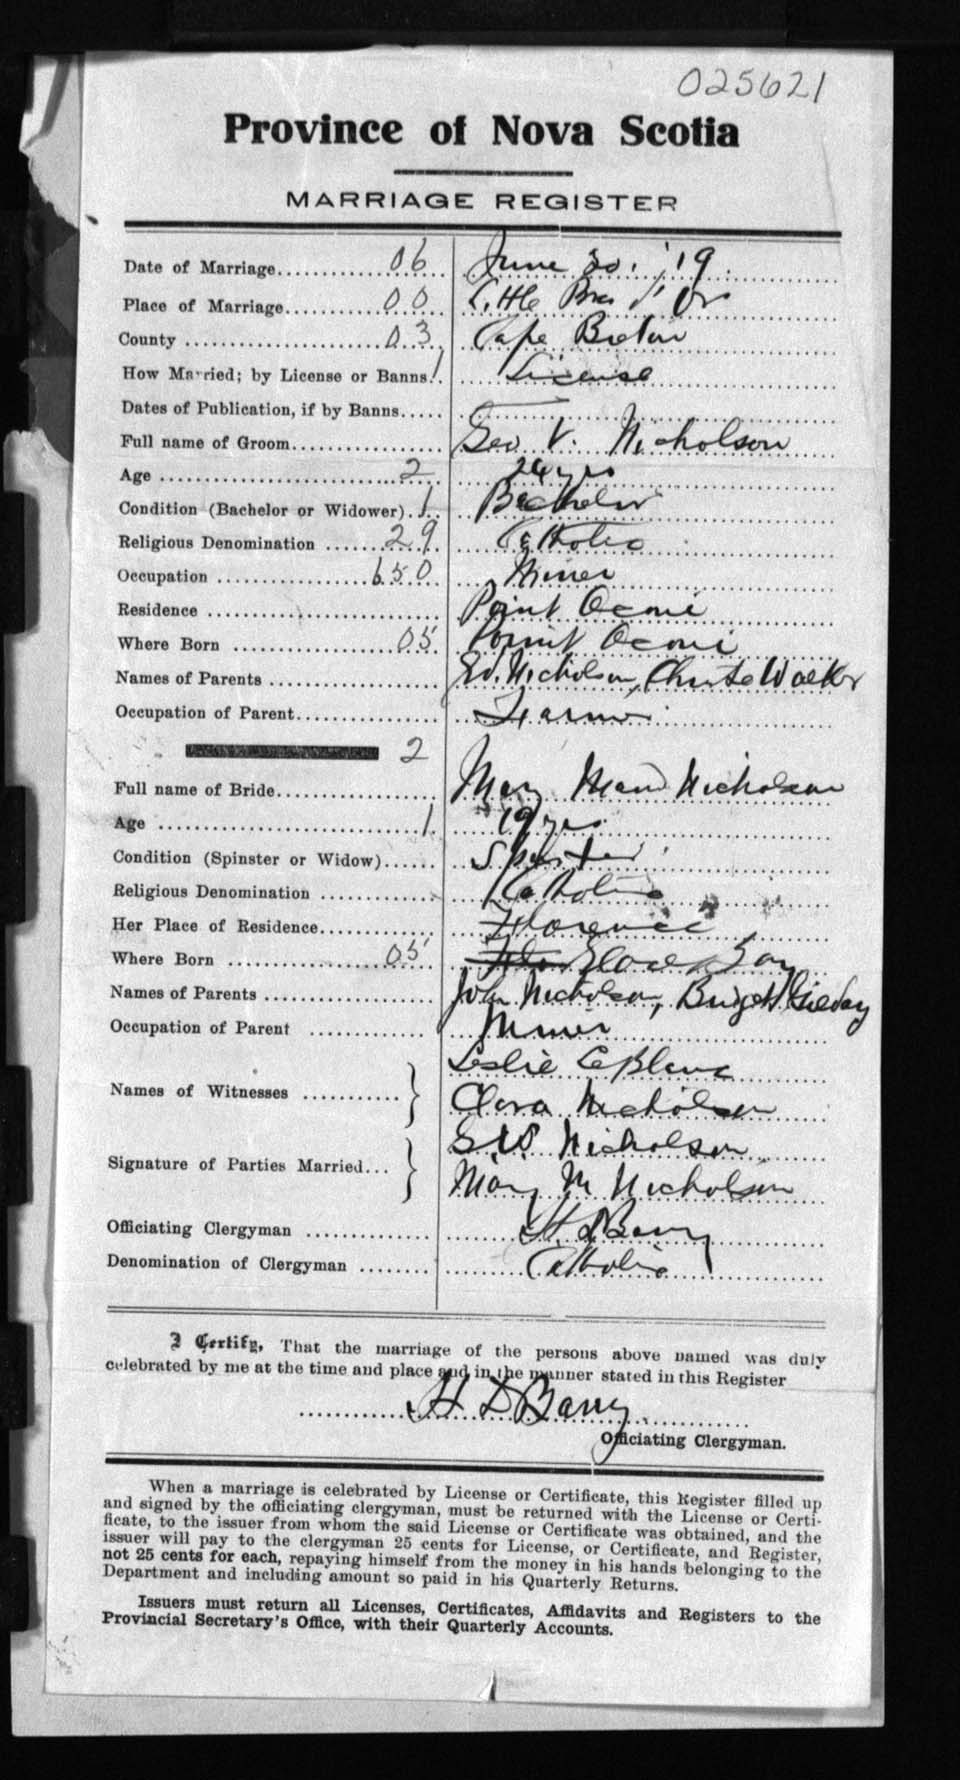 025621
Province of Nova Scotia
MARRIAGE REGISTER
Date of Marriage 06 June 30, '19
Place of Marriage 00 Little Bras d'Or
County 03 Cape Breton
How Married; by License or Banns 1 License
Dates of Publication, if by Banns
Full name of Groom Geo V. Nicholson
Age 2 24 yrs
Condition (Bachelor or Widower) 1 Bachelor
Religious Denomination 29 Catholic
Occupation 650 Miner
Residence Point Aconi
Where Born 05 Point Aconi
Names of Parents Ed. Nicholson, Walker
Occupation of Parent Farmer
2
Full name of Bride Mary Nicholson
Age 1 19 yrs
Condition (Spinster or Widow) Spinster
Religious Denomination Catholic
Her Place of Residence Florence
Where Born 05 Glace Bay
Names of Parents John Nicholson, Bridget Gilday
Occupation of Parent Miner
Names of Witnesses Leslie LeBlanc
Clara Nicholson
Signature of Parties Married G.V. Nicholson
Mary M Nicholson
Officiating Clergyman H. D Barry
Denomination of Clergyman Catholic
I Certify, That the marriage of the persons above named was duly
celebrated by me at the time and place and in the manner stated in this Register
H D Barry
Officiating Clergyman.
When a marriage is celebrated by License or Certificate, this Register filled up
and signed by the officiating clergyman, must be returned with the License or Certi-
ficate, to the issuer from whom the said License or Certificate was obtained, and the
issuer will pay to the clergyman 25 cents for License, or Certificate, and Register,
not 25 cents for each, repaying himself from the money in his hands belonging to the
Department and including amount so paid in his Quarterly Returns.
Issuers must return all Licenses, Certificates, Affidavits and Registers to the
Provincial Secretary's Office, with their Quarterly Accounts.